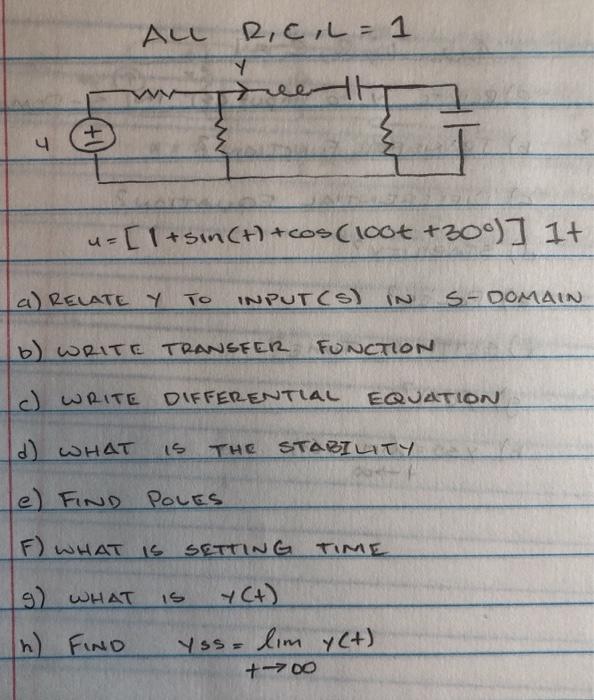 ALL R, C, L = 1
Y
u
u = [1 + sin(t) + cos(100t + 30°)] 1t
a) RELATE Y TO INPUT(S) IN S-DOMAIN
b) WRITE TRANSFER FUNCTION
c) WRITE DIFFERENTIAL EQUATION
d) WHAT IS THE STABILITY
e) FIND POLES
F) WHAT IS SETTING TIME
g) WHAT IS Y(t)
h) FIND Yss = lim y(t)
t→∞